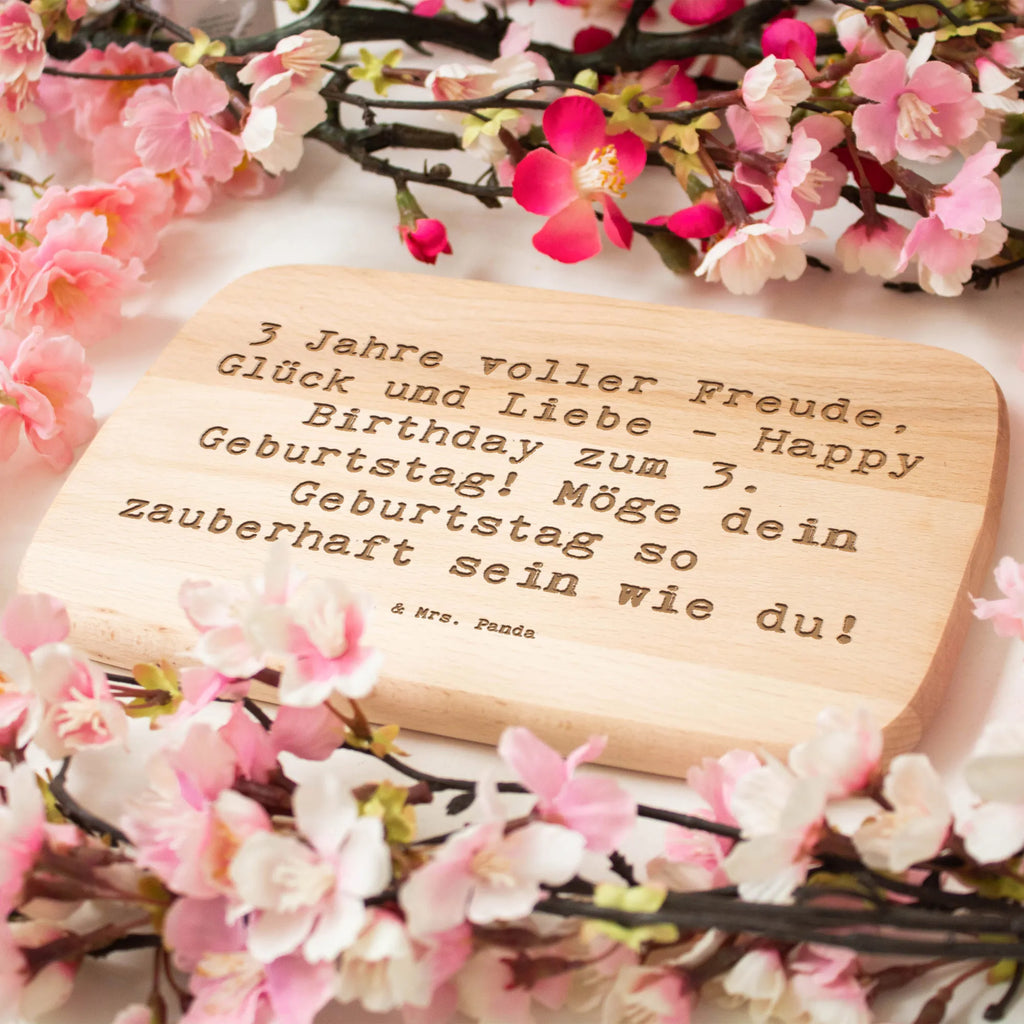 3 Jahre voller Freude,
Glück und Liebe - Happy
Birthday zum 3.
Geburtstag! Möge dein
Geburtstag so
zauberhaft sein wie du!
& Mrs. Panda